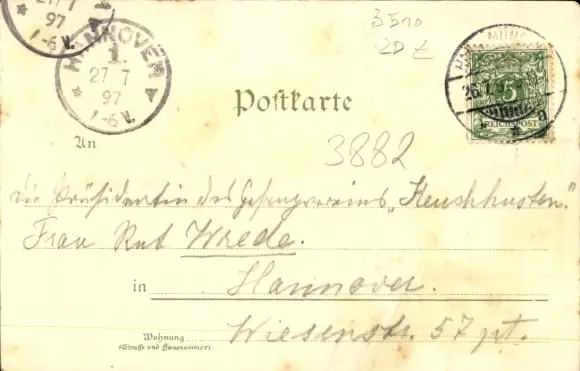 27 7
97
1-6 V.
HANNOVER
1.
27 7
97
1-6 V.
3510
20
26.7.
5
REICHSPOST
Postkarte
An
3882
die Präsidentin des Gesangvereins „Keuchhusten“
Frau Rat Wrede.
in Hannover.
Wohnung
(Straße und Hausnummer)
Wiesenstr. 57 pt.